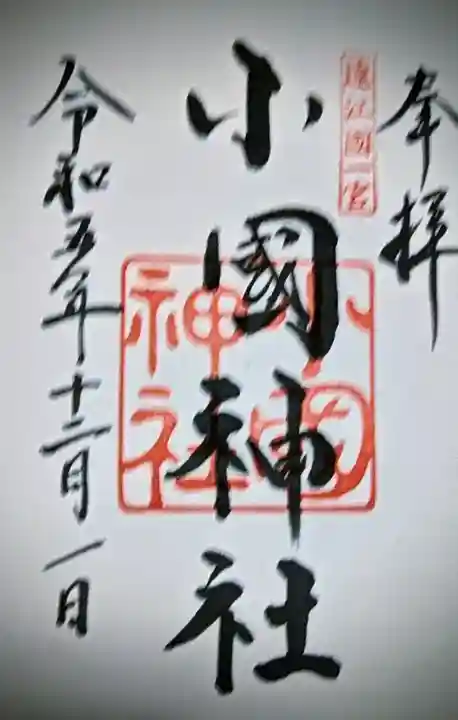 奉拝
遠江國一宮
小國神社
小國
神社
令和五年十二月一日